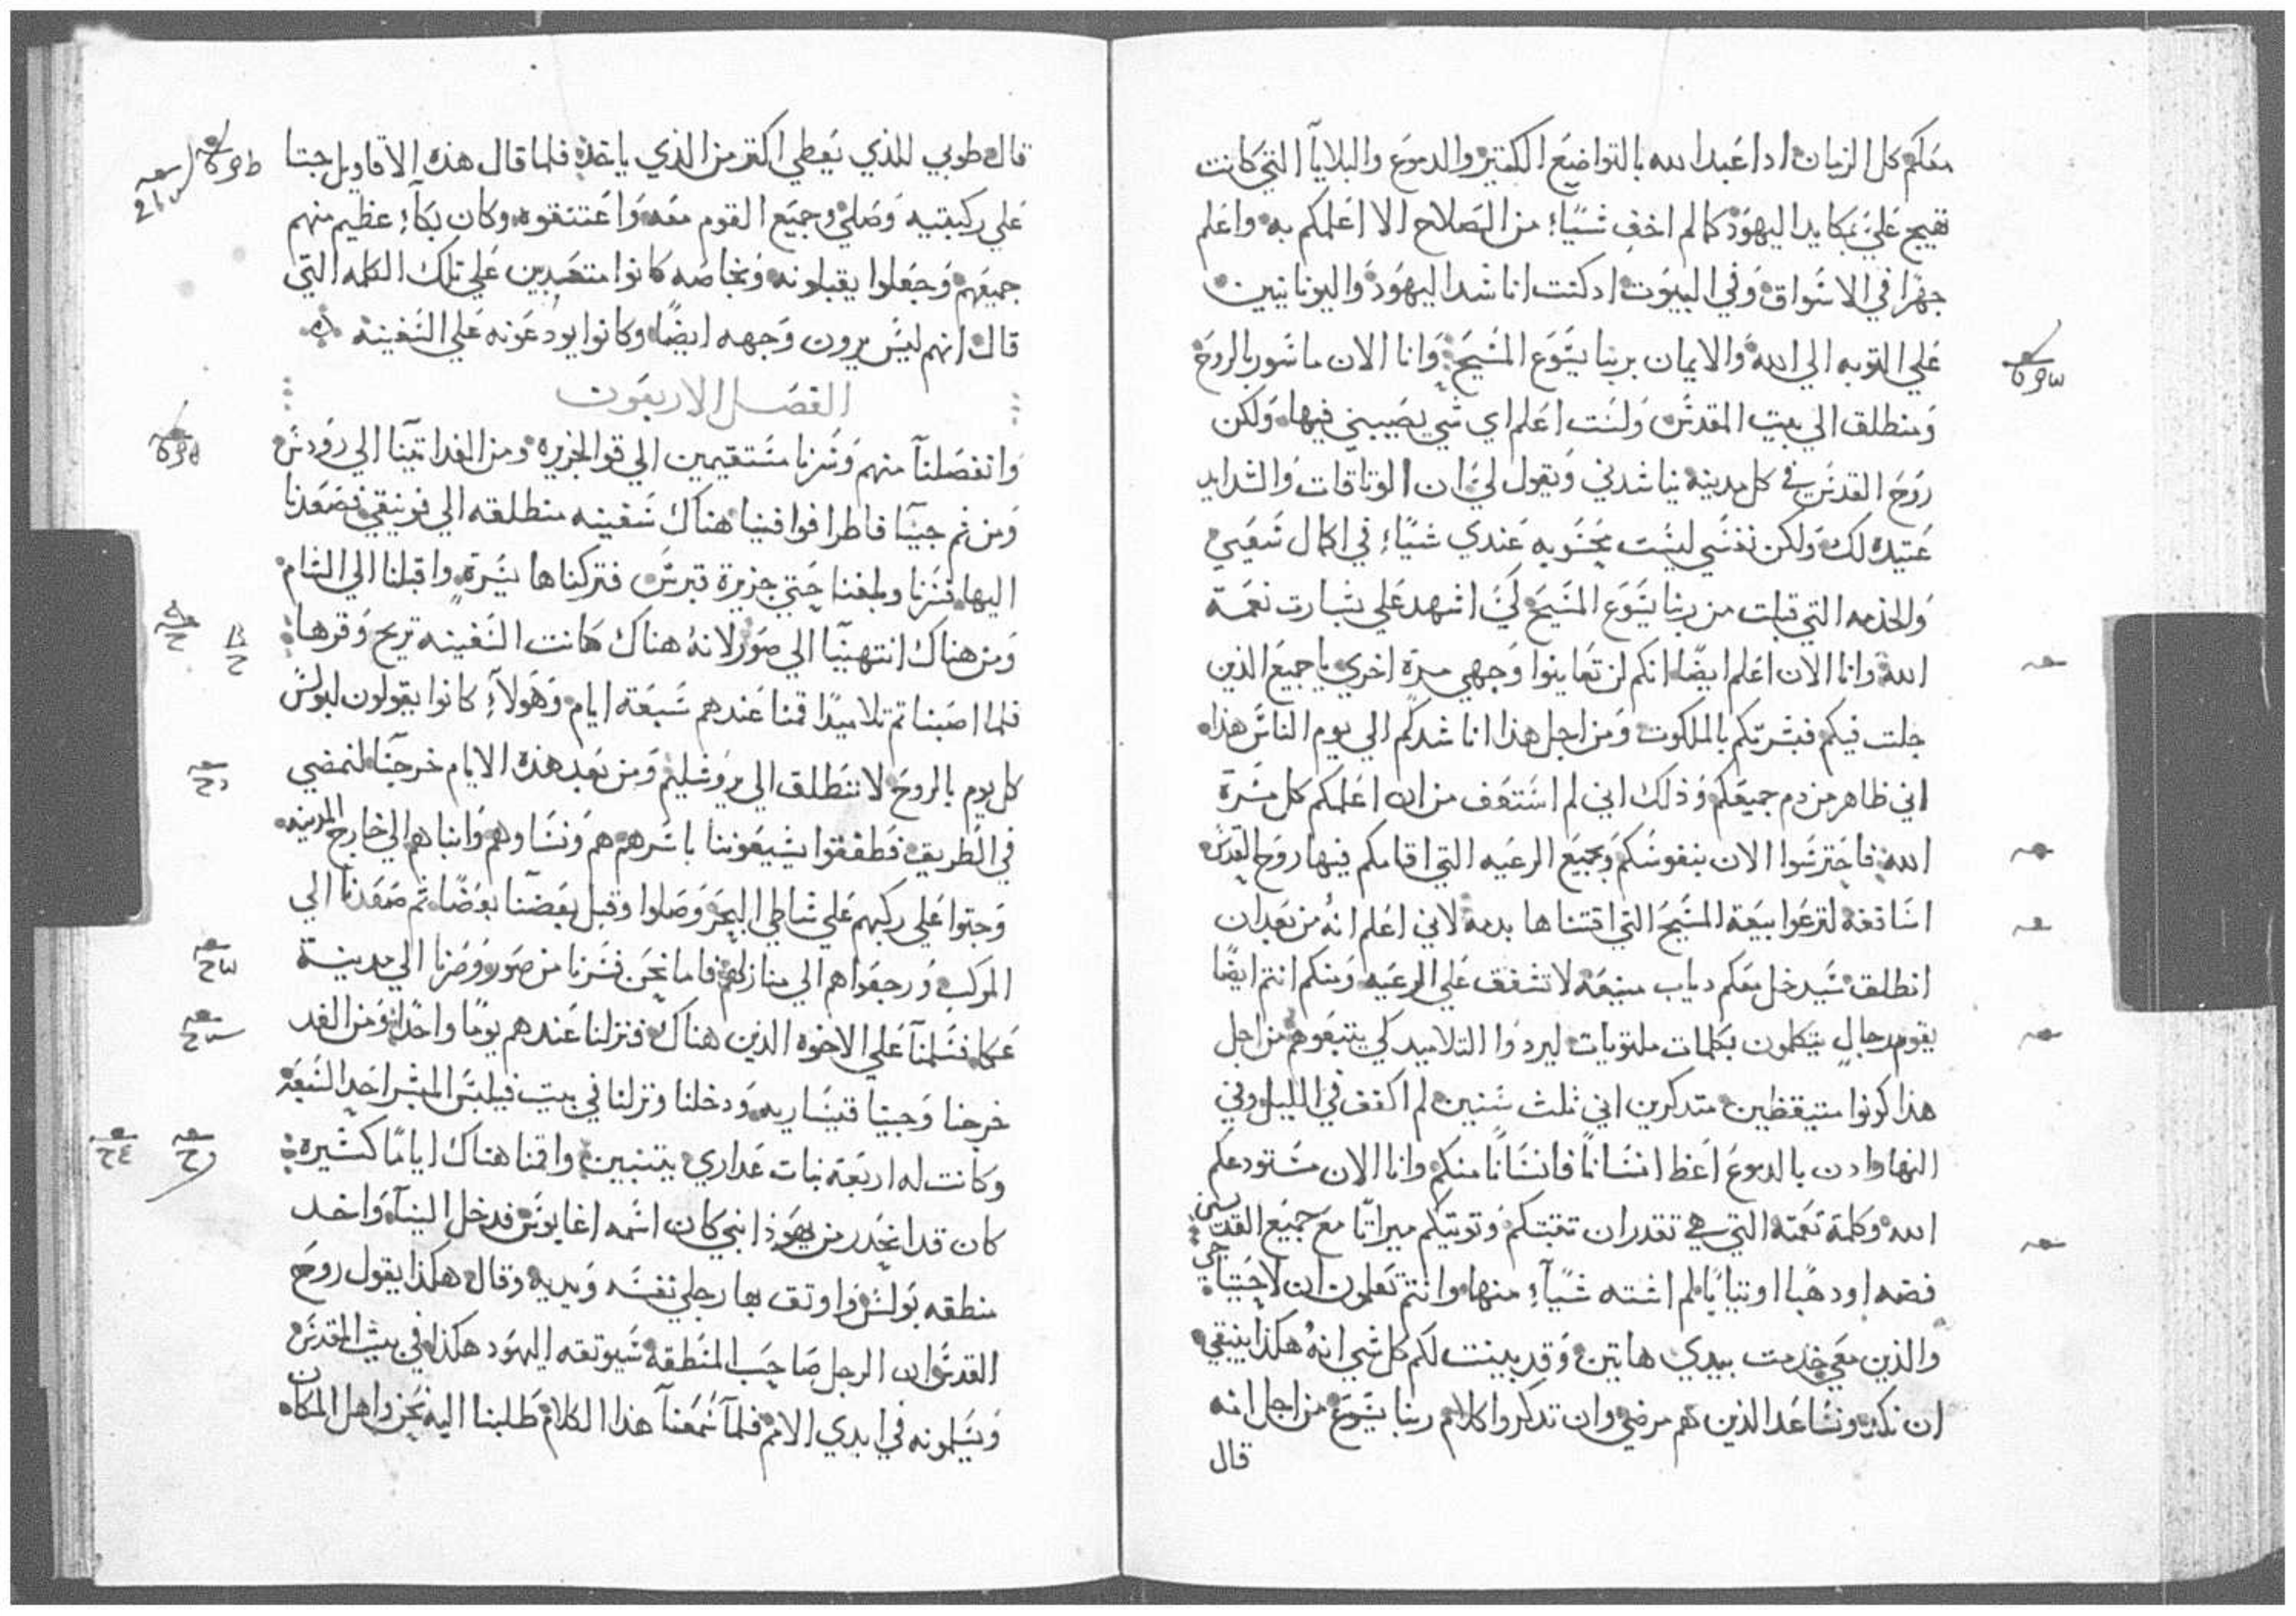 معكم كل الزمان ادا اعبد الله بالتواضع الكتير والدموع والبلايا التي كانت
تهيج علي بمكايد اليهود كما لم اخف شيّا من الصلاح الا اعلمكم به واعلم
جهرا في الاسواق وفي البيوت اد كنت اناشد اليهود واليونانيين
علي التوبه الي الله والايمان بربنا يسوع المسيح وانا الان ماسور بالروح
ومنطلق الي بيت المقدس ولست اعلم اي شي يصيبني فيها ولكن
روح القدس في كل مدينة يناشدني ويقول لي ان الوتاقات والشدايد
عتيده لك ولكن نفسي ليست محسوبه عندي شيّا في اكمال سعيي
والخدمه التي قبلت من ربنا يسوع المسيح لكي اشهد علي بشارت نعمة
الله وانا الان اعلم ايضا انكم لن تعاينوا وجهي مرة اخري يا جميع الذين
جلت فيكم فبشرتكم بالملكوت ومن اجل هذا اناشدكم الي يوم الناس هذا
اني طاهر من دم جميعكم وذلك اني لم استعف من ان اعلمكم كل مسرة
الله فاحترسوا الان بنفوسكم وبجميع الرعيه التي اقامكم فيها روح القدس
اساقفة لترعوا بيعة المسيح التي اقتناها بدمه لاني اعلم انه من بعد ان
انطلق سيدخل معكم دياب منيعة لا تشفق علي الرعيه ومنكم انتم ايضا
يقوم رجال يتكلمون بكلمات ملتويات ليردوا التلاميد كي يتبعوهم من اجل
هذا كونوا متيقظين متدكرين اني ثلث سنين لم اكفف في الليل وفي
النهار ادن بالدموع اعظ انسانا فانسانا منكم وانا الان مستودعكم
الله وكلمة نعمته التي هي تقدر ان تثبتكم وتوتيكم ميراتا مع جميع القديسين
فضه او دهبا او تيابا لم اشته شيّا منها وانتم تعلمون ان لاحتياجي
والذين معي خدمت بيدي هاتين وقد بينت لكم كل شي انه هكذا ينبغي
ان نكد ونساعد الذين هم مرضي وان تدكروا كلام ربنا يسوع من اجل انه
قال
قال طوبي للذي يعطي اكتر من الذي ياخذ فلما قال هذه الاقاويل جتا
علي ركبتيه وصلي وجميع القوم معه واعتنقوه وكان بكاء عظيم منهم
جميعهم وجعلوا يقبلونه وبخاصه كانوا متعدبين علي تلك الكلمه التي
قال انهم ليس يرون وجهه ايضا وكانوا يودعونه علي السفينه
الفصل الاربعون
وانفصلنا منهم وسرنا مستقيمين الي قو الجزيره ومن الغد اتينا الي رودس
ومن ثم جينا فاطرا فوافينا هناك سفينه منطلقه الي فونيقي فصعدنا
اليها فسرنا وبلغنا حتي جزيرة قبرس فتركناها يسرة واقبلنا الي الشام
ومن هناك انتهينا الي صور لانه هناك كانت السفينه تريح وقرها
فلما اصبنا تم تلاميدا قمنا عندهم سبعة ايام وهولاء كانوا يقولون لبولس
كل يوم بالروح لا تنطلق الي يروشليم ومن بعد هذه الايام خرجنا لنمضي
في الطريق فطفقوا يشيعوننا باسرهم هم ونساوهم وابناهم الي خارج المدينه
وجتوا علي ركبهم علي شاطي البحر وصلوا وقبل بعضنا بعضا تم صعدنا الي
المركب ورجعوا هم الي منازلهم فاما نحن فسرنا من صور وصرنا الي مدينة
عكا فسلمنا علي الاخوه الذين هناك فنزلنا عندهم يوما واحدا ومن الغد
خرجنا وجينا قيساريه ودخلنا ونزلنا في بيت فيلبس المبشر احد السبعة
وكانت له اربعة بنات عداري يتنبين واقمنا هناك اياما كتيره
كان قد انحدر من يهوذا نبي كان اسمه اغابوس فدخل الينا واخد
منطقه بولس واوتق بها رجلي نفسه ويديه وقال هكذا يقول روح
القدس ان الرجل صاحب المنطقه سيوتقه اليهود هكذا في بيت المقدس
ويسلمونه في ايدي الامم فلما سمعنا هذا الكلام طلبنا اليه نحن واهل المكان